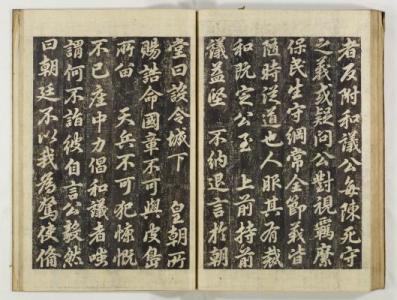 者反附和議公每陳死守
之義或疑問公對視羈縻
保民生守綱常全節義皆
隨時從道也人服其有裁
和既定公至 上前持前
議益堅 不納退言於朝
堂曰設令城下 皇朝所
賜誥命國章不可與皮島
所留 天兵不可犯慷慨
不已座中力倡和議者嗤
謂何不詣彼自言公毅然
曰朝廷不以我為駑使備